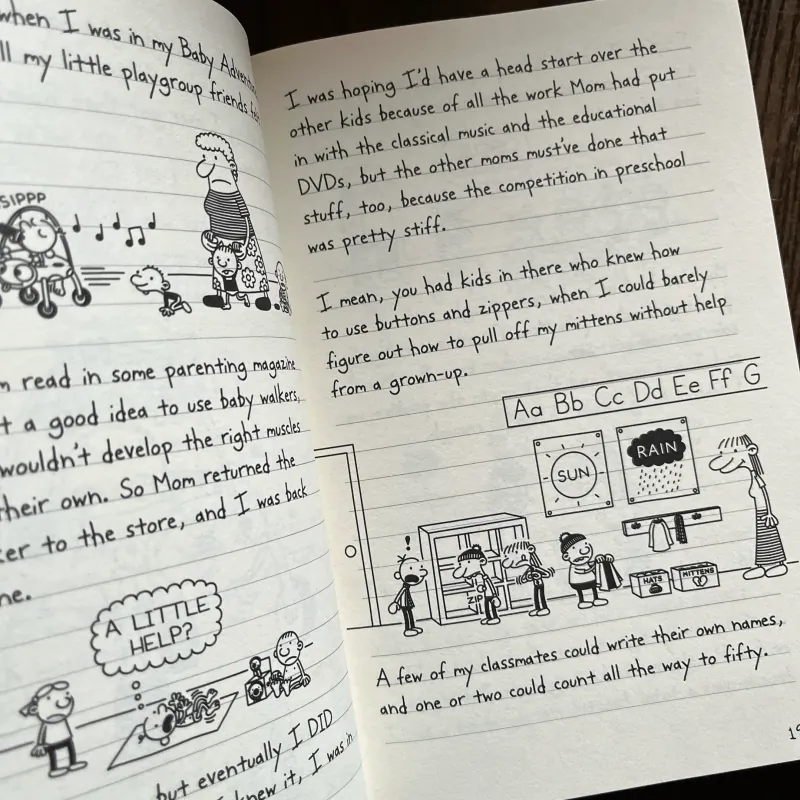 when I was in my Baby
ll my little playgroup friends
SIPPP
read in some parenting magazine
a good idea to use baby walkers,
wouldn't develop the right muscles
their own. So Mom returned the
to the store, and I was back
A LITTLE
HELP?
but eventually I DID
knew it, I was in
I was hoping I'd have a head start over the
other kids because of all the work Mom had put
in with the classical music and the educational
DVDs, but the other moms must've done that
stuff, too, because the competition in preschool
was pretty stiff.
I mean, you had kids in there who knew how
to use buttons and zippers, when I could barely
figure out how to pull off my mittens without help
from a grown-up.
Aa Bb Cc Dd Ee Ff G
SUN
RAIN
!
ZIP
HATS
MITTENS
A few of my classmates could write their own names,
and one or two could count all the way to fifty.